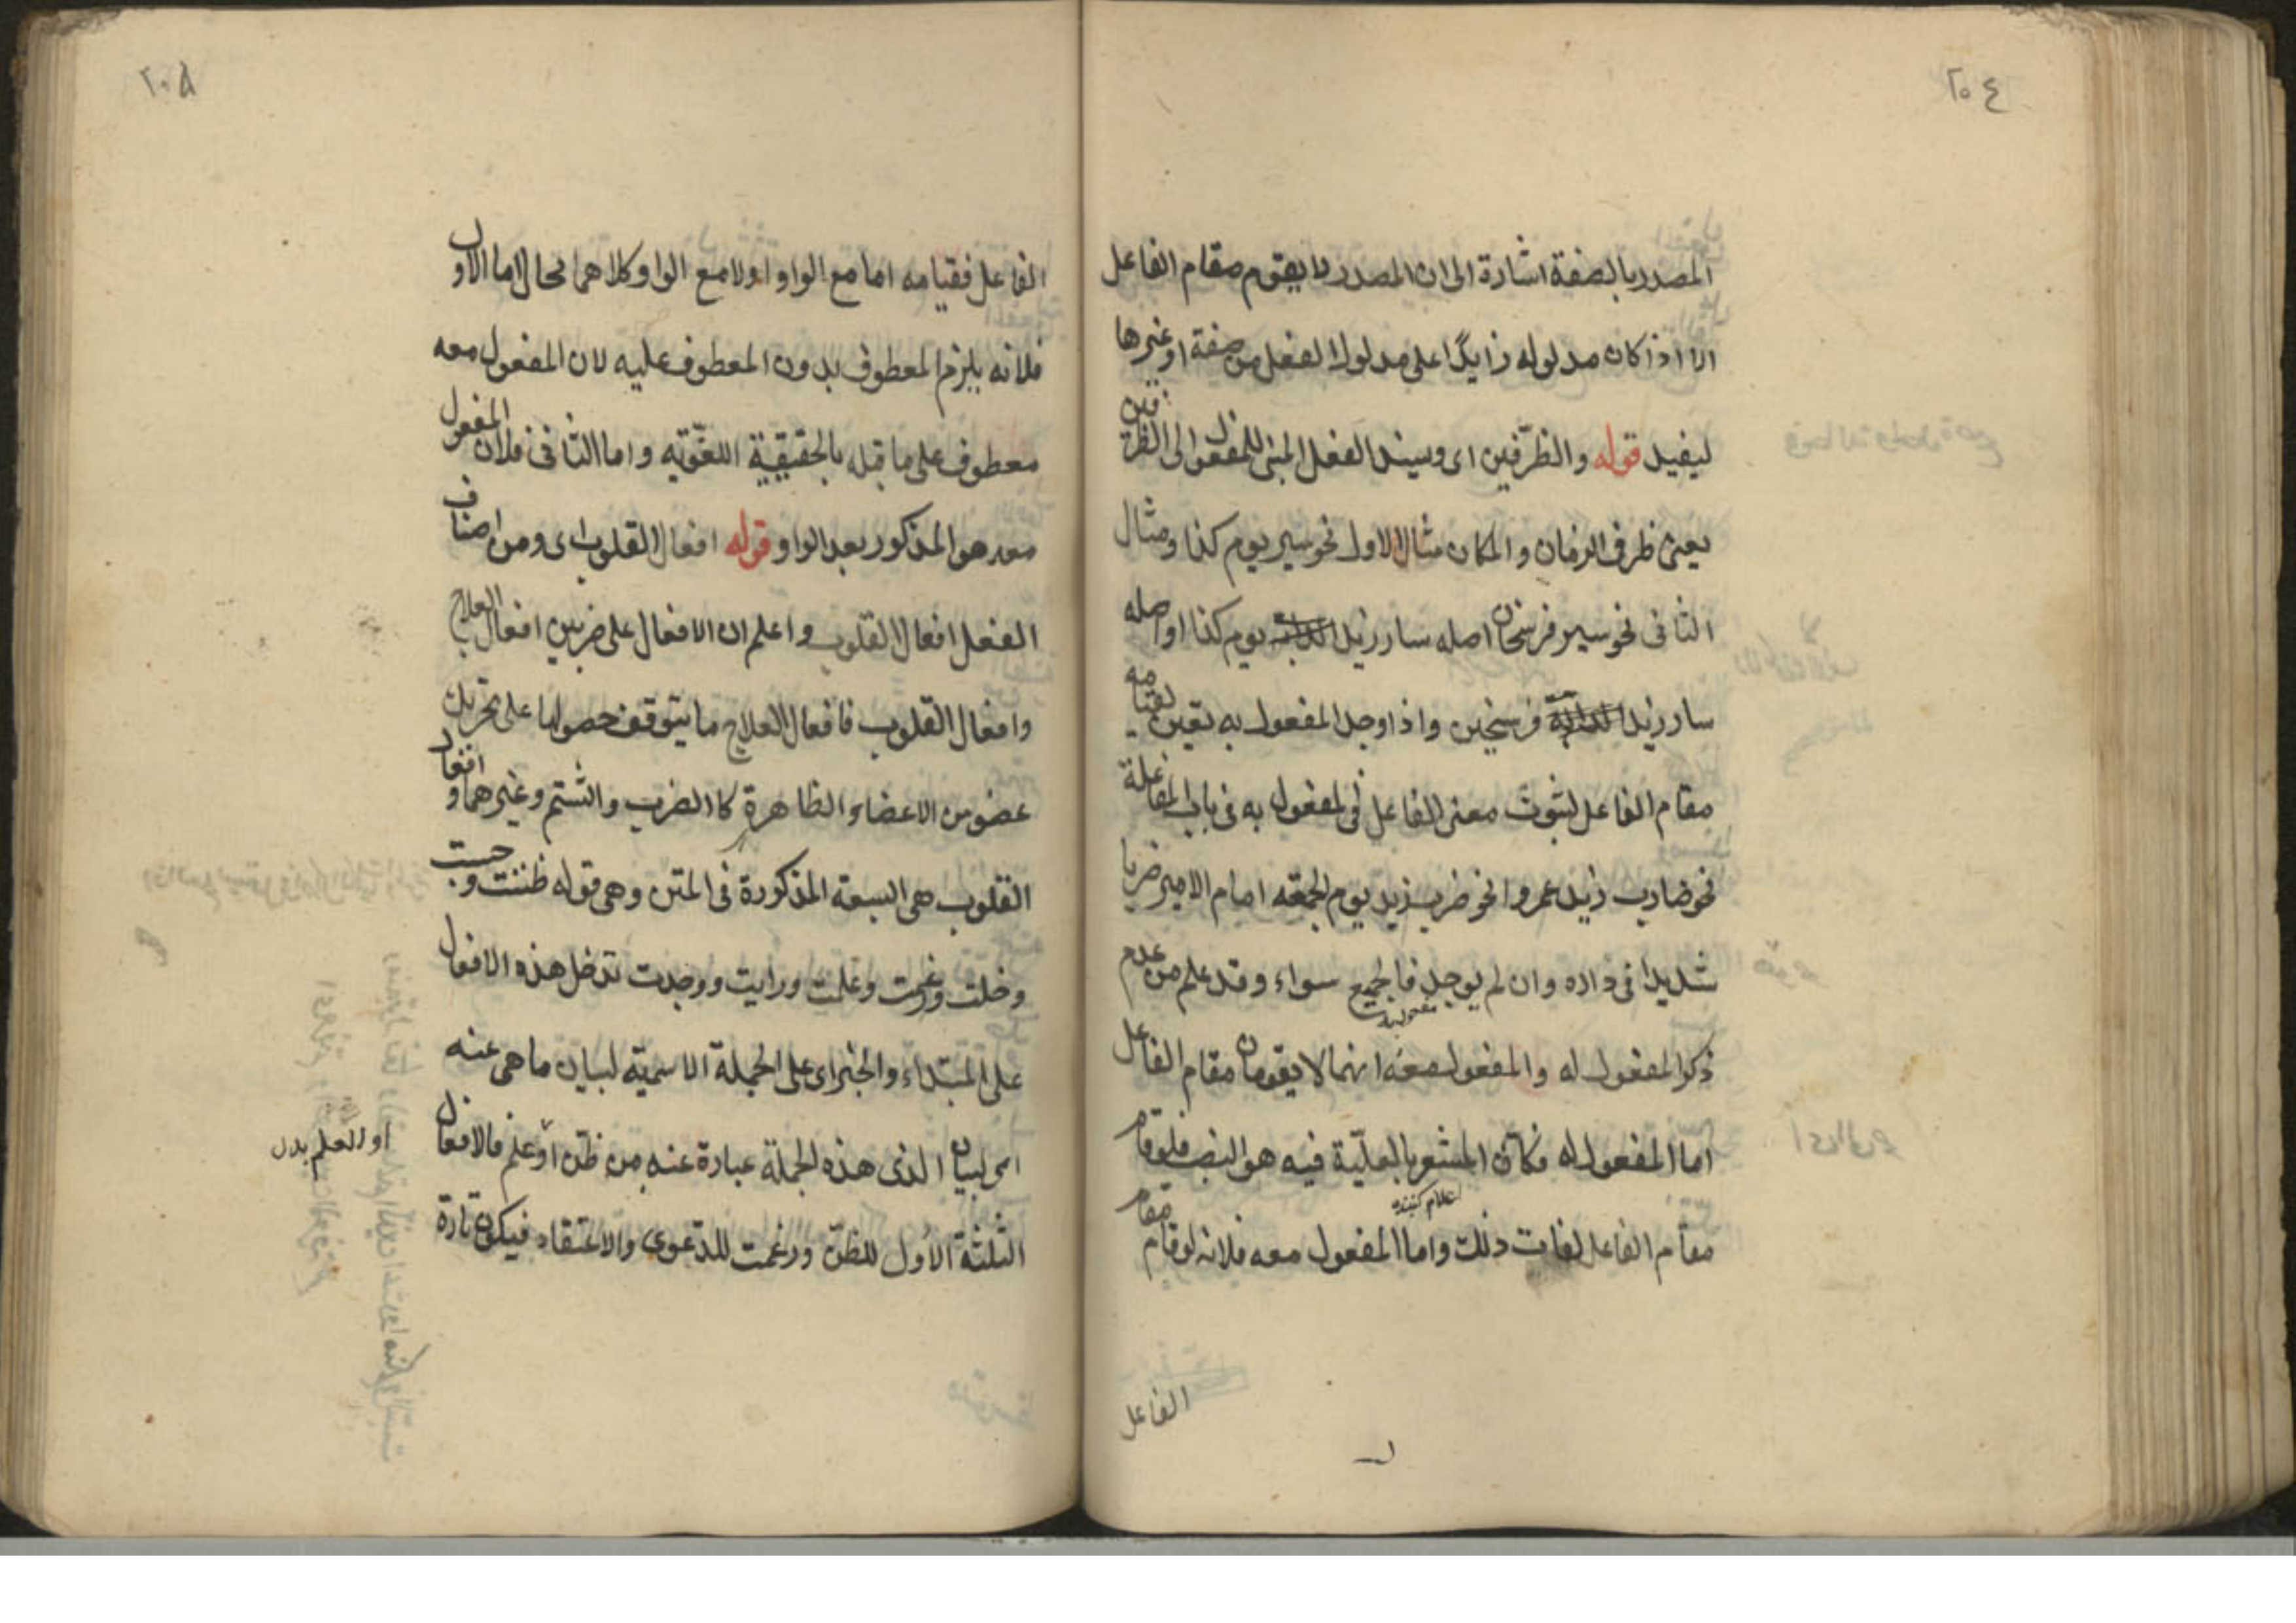 ٢٠٤
المصدر بالصفة اشارة الى ان المصدر لا يقوم مقام الفاعل
الا اذا كان مدلوله زايدا على مدلول الفعل من صفة او غيرها
ليفيد قوله والظرفين اى ويسند الفعل المبنى للمفعول الى الظرفين
يعنى ظرف الزمان والمكان مثال الاول نحو سير يوم كذا ومثال
الثانى نحو سير فرسخان اصله سار زيد يوم كذا او اصله
سار زيد فرسخين واذا وجد المفعول به تعين لقيامه
مقام الفاعل لثبوت معنى الفاعل فى المفعول به فى باب المفاعلة
نحو ضارب زيد عمروا نحو ضرب زيد يوم الجمعة امام الامير ضربا
شديدا فى داره وان لم يوجد فالجميع سواء وقد علم من عدم
ذكر المفعول له والمفعول معه انهما لا يقومان مقام الفاعل
اما المفعول له فكان المشعر بالعلية فيه هو النصب فلو قام
اعلام كننده
مقام الفاعل لفات ذلك واما المفعول معه فلانه لو قام مقام
الفاعل
٢٠٥
الفاعل فقيامه اما مع الواو او لا مع الواو وكلاهما محال اما الاول
فلانه يلزم المعطوف بدون المعطوف عليه لان المفعول معه
معطوف على ما قبله بالحقيقية اللغوية واما الثانى فلان المفعول
معه هو المذكور بعد الواو قوله افعال القلوب اى ومن اصناف
الفعل افعال القلوب واعلم ان الافعال على ضربين افعال العلاج
وافعال القلوب فافعال العلاج ما يتوقف حصولها على تحريك
عضو من الاعضاء الظاهرة كا الضرب والشتم وغيرهما وافعال
القلوب هى السبعة المذكورة فى المتن وهى قوله ظننت وحسبت
وخلت وزعمت وعلمت ورايت ووجدت تدخل هذه الافعال
على المبتداء والخبر اى على الجملة الاسمية لبيان ما هى عنه
اى لبيان الذى هذه الجملة عبارة عنه من ظن او علم فالافعال
او العلم بدل
الثلثة الاول للظن وزعمت للدعوى والاعتقاد فيكون تارة